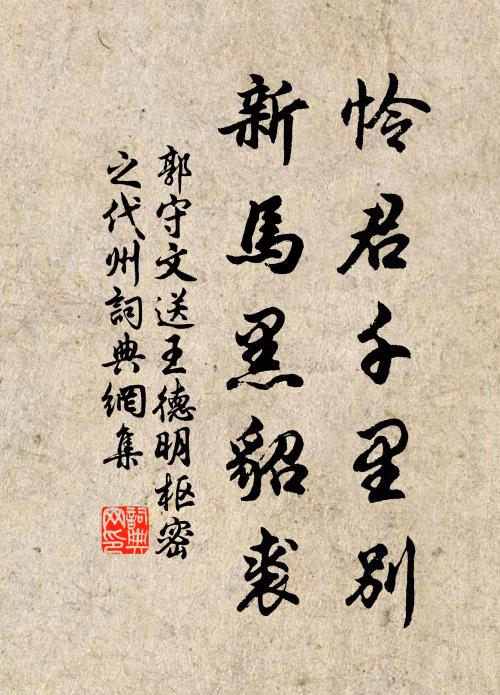 怜君千里別
新馬黑貂裘
郭守文送王德明枢密
之代州詞典網集
詞典
网印